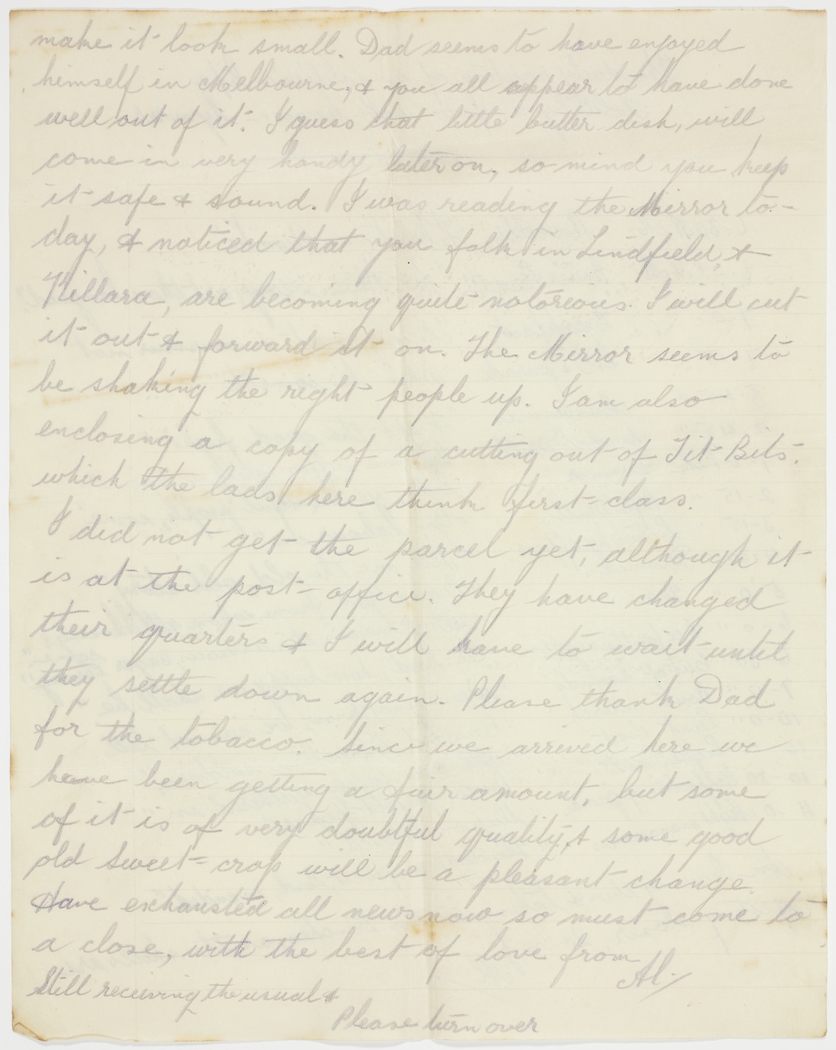 make it look small. Dad seems to have enjoyed
himself in Melbourne, & you all appear to have done
well out of it. I guess that little butter dish, will
come in very handy later on, so mind you keep
it safe & sound. I was reading the Mirror to-
day, & noticed that you folk in Lindfield &
Killara, are becoming quite notorious. I will cut
it out & forward it on. The Mirror seems to
be shaking the right people up. I am also
enclosing a copy of a cutting out of Tit-Bits.
which the lads here think first-class.
I did not get the parcel yet, although it
is at the post-office. They have changed
their quarters & I will have to wait until
they settle down again. Please thank Dad
for the tobacco. Since we arrived here we
have been getting a fair amount, but some
of it is of very doubtful quality, & some good
old sweet-crop will be a pleasant change.
Have exhausted all news now so must come to
a close, with the best of love from
Al.
Still receiving the usual &
Please turn over